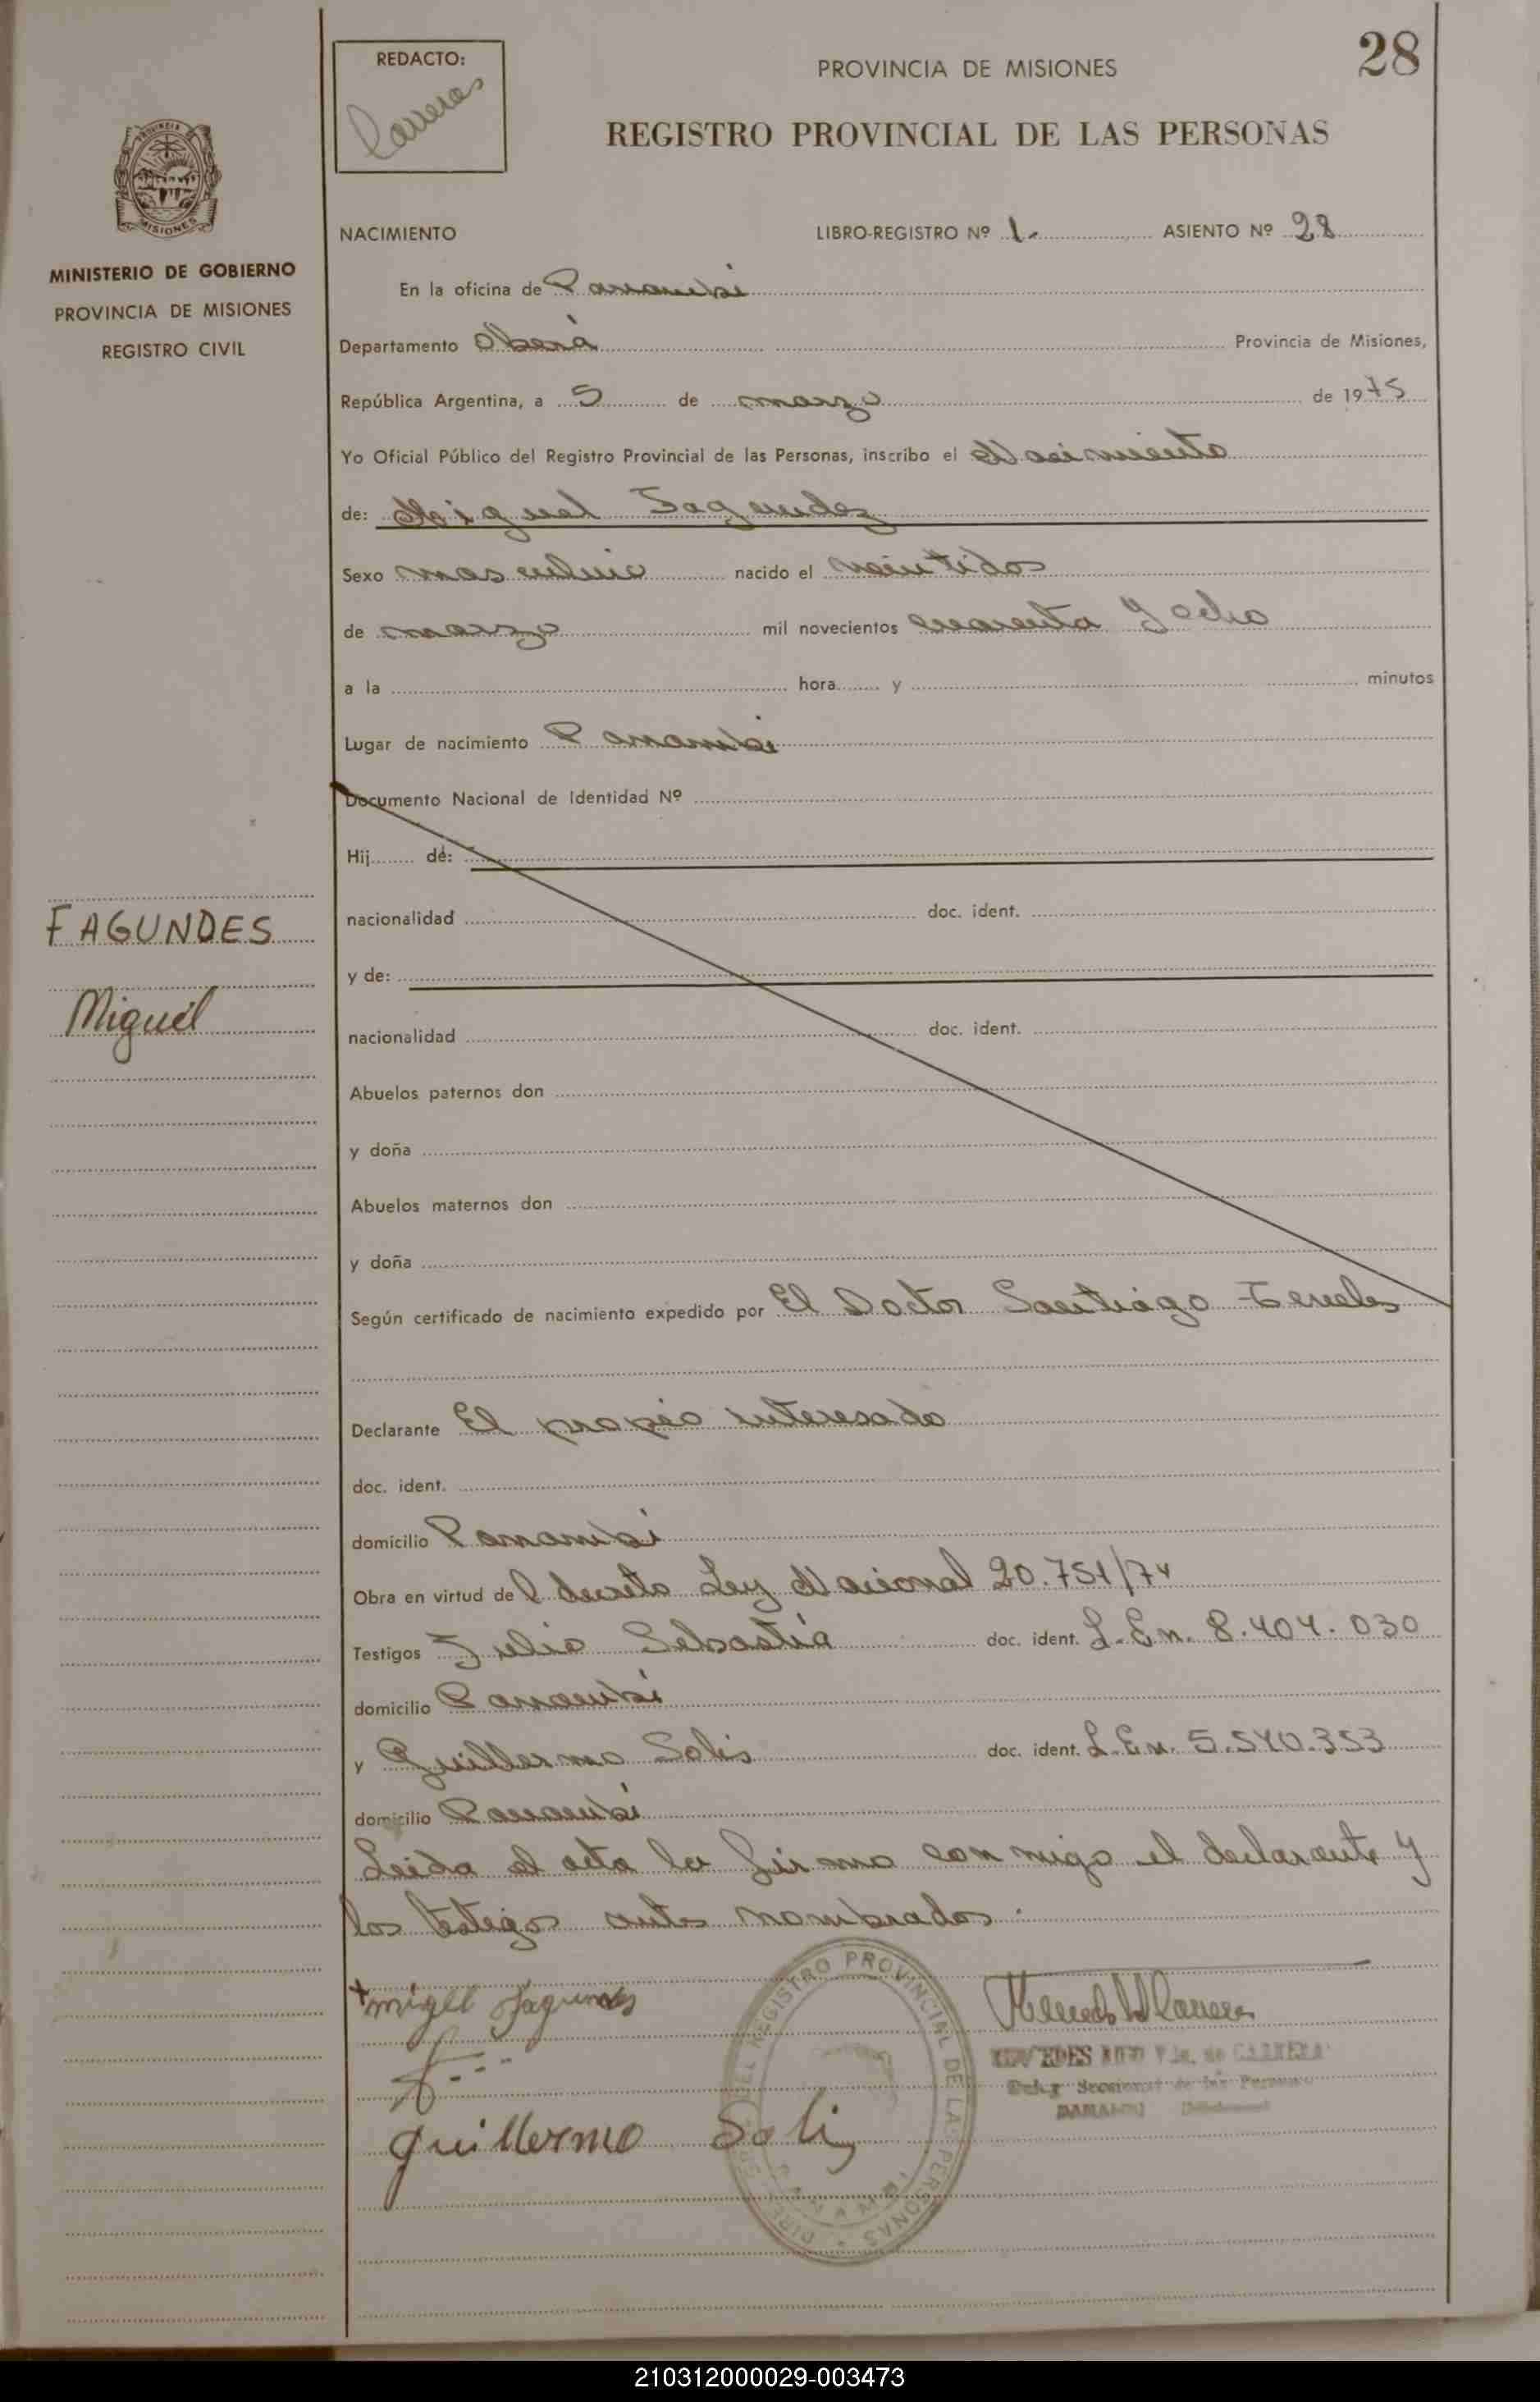 28
REDACTO:
Carrera
PROVINCIA DE MISIONES
REGISTRO PROVINCIAL DE LAS PERSONAS
MISIONES
MINISTERIO DE GOBIERNO
PROVINCIA DE MISIONES
REGISTRO CIVIL
NACIMIENTO LIBRO-REGISTRO Nº 1.- ASIENTO Nº 28
En la oficina de Panambí
Departamento Oberá Provincia de Misiones,
República Argentina, a 5 de marzo de 1975
Yo Oficial Público del Registro Provincial de las Personas, inscribo el Nacimiento
de: Miguel Fagundez
Sexo masculino nacido el veintidos
de marzo mil novecientos cuarenta y ocho
a la hora y minutos
Lugar de nacimiento Panambí
Documento Nacional de Identidad Nº
Hij de:
FAGUNDES
Miguél
nacionalidad doc. ident.
y de:
nacionalidad doc. ident.
Abuelos paternos don
y doña
Abuelos maternos don
y doña
Según certificado de nacimiento expedido por El Doctor Santiago
Declarante El propio interesado
doc. ident.
domicilio Panambí
Obra en virtud del decreto Ley Nacional 20.751/74
Testigos Julio Sebastiá doc. ident. L.E.n. 8.404.030
domicilio Panambí
y Guillermo Solis doc. ident. L.E.n. 5.540.353
domicilio Panambí
Leida el acta la firma con migo el declarante y
los testigos antes nombrados.
miguel Fagundes
guillermo Solis
REGISTRO PROVINCIAL DE LAS PERSONAS
PANAMBI
210312000029-003473